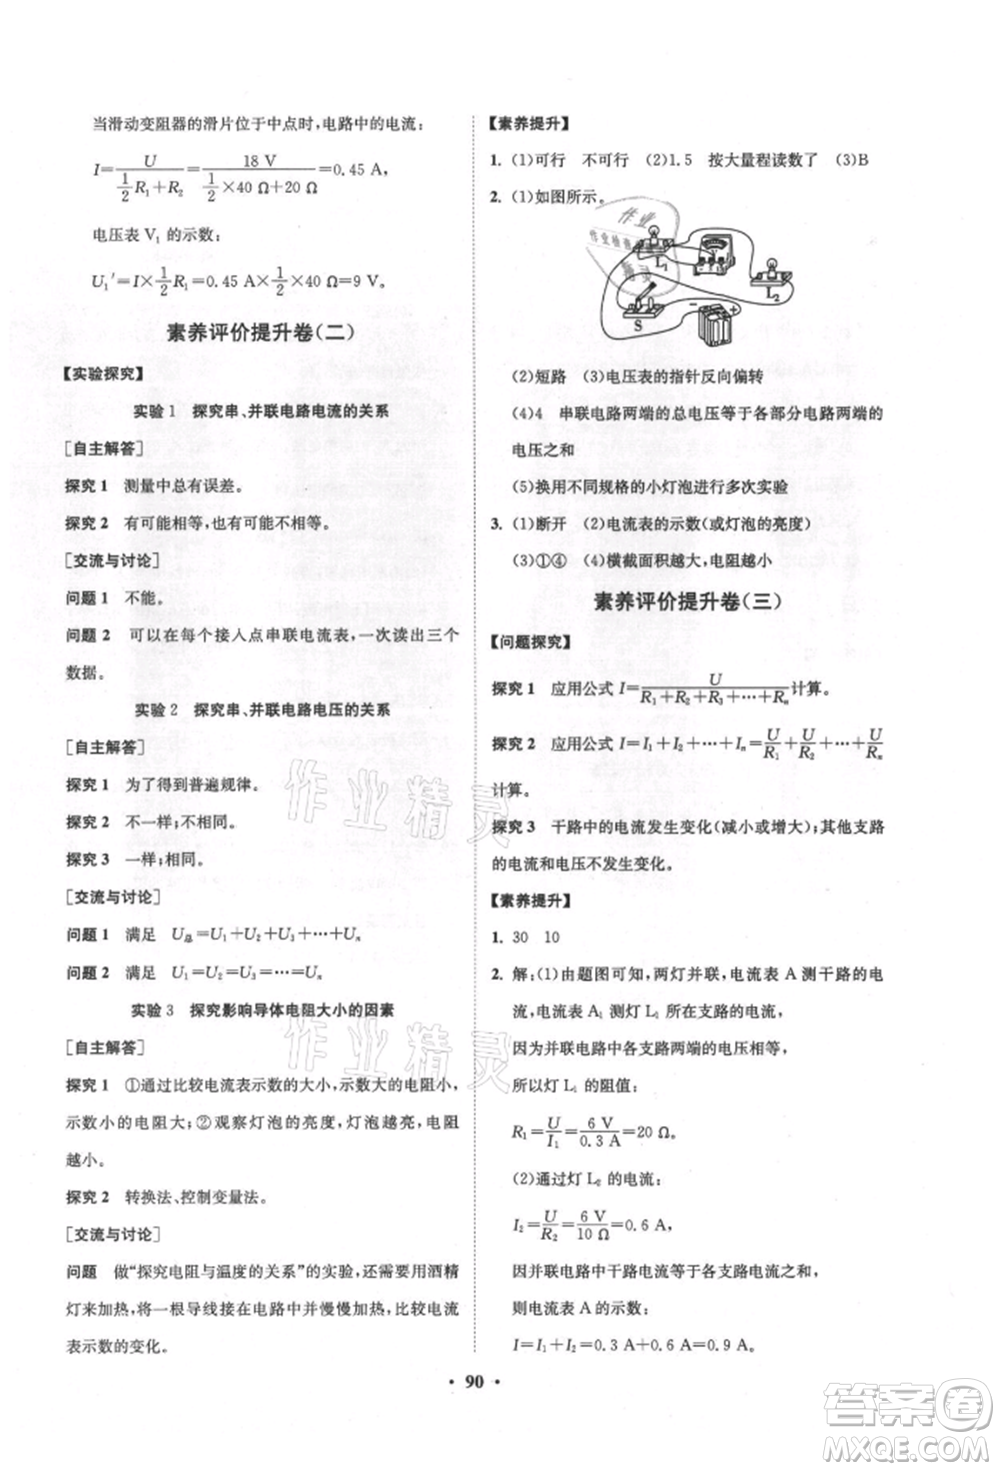 当滑动变阻器的滑片位于中点时,电路中的电流:
I=U/(1/2 R₁+R₂)=18 V/(1/2×40 Ω+20 Ω)=0.45 A,
电压表 V₁ 的示数:
U₁′=I×1/2 R₁=0.45 A×1/2×40 Ω=9 V。
素养评价提升卷(二)
【实验探究】
实验 1 探究串、并联电路电流的关系
[自主解答]
探究 1 测量中总有误差。
探究 2 有可能相等,也有可能不相等。
[交流与讨论]
问题 1 不能。
问题 2 可以在每个接入点串联电流表,一次读出三个
数据。
实验 2 探究串、并联电路电压的关系
[自主解答]
探究 1 为了得到普遍规律。
探究 2 不一样;不相同。
探究 3 一样;相同。
[交流与讨论]
问题 1 满足 U总=U₁+U₂+…+Uₙ
问题 2 满足 U₁=U₂=…=Uₙ
实验 3 探究影响导体电阻大小的因素
[自主解答]
探究 1 ①通过比较电流表示数的大小,示数大的电阻小,
示数小的电阻大;②观察灯泡的亮度,灯泡越亮,电阻
越小。
探究 2 转换法、控制变量法。
[交流与讨论]
问题 做“探究电阻与温度的关系”的实验,还需要用酒精
灯来加热,将一根导线接在电路中并慢慢加热,比较电流
表示数的变化。
【素养提升】
1. (1)可行 不可行 (2)1.5 按大量程读数了 (3)B
2. (1)如图所示。
L₁
V
L₂
S
－
＋
(2)短路 (3)电压表的指针反向偏转
(4)4 串联电路两端的总电压等于各部分电路两端的
电压之和
(5)换用不同规格的小灯泡进行多次实验
3. (1)断开 (2)电流表的示数(或灯泡的亮度)
(3)①④ (4)横截面积越大,电阻越小
素养评价提升卷(三)
【问题探究】
探究 1 应用公式 I=U/(R₁+R₂+R₃+…+Rₙ)计算。
探究 2 应用公式 I=I₁+I₂+…+Iₙ=U/R₁+U/R₂+…+U/Rₙ
计算。
探究 3 干路中的电流发生变化(减小或增大);其他支路
的电流和电压不发生变化。
【素养提升】
1. 30 10
2. 解:(1)由题图可知,两灯并联,电流表 A 测干路的电
流,电流表 A₁ 测灯 L₁ 所在支路的电流,
因为并联电路中各支路两端的电压相等,
所以灯 L₁ 的阻值:
R₁=U/I₁=6 V/0.3 A=20 Ω。
(2)通过灯 L₂ 的电流:
I₂=U/R₂=6 V/10 Ω=0.6 A,
因并联电路中干路电流等于各支路电流之和,
则电流表 A 的示数:
I=I₁+I₂=0.3 A+0.6 A=0.9 A。
• 90 •
作业精灵
作业精灵
作业
作业检查
精灵
答案圈
MXQE.COM